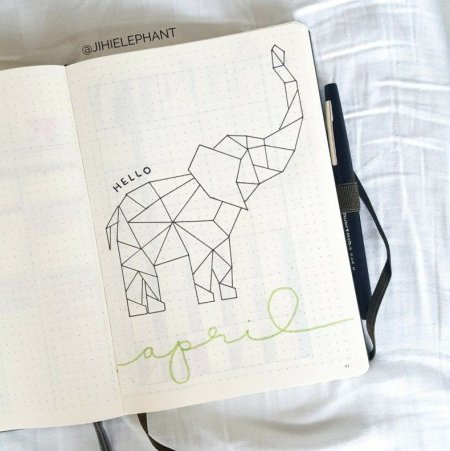 @JIHIELEPHANT
HELLO
april